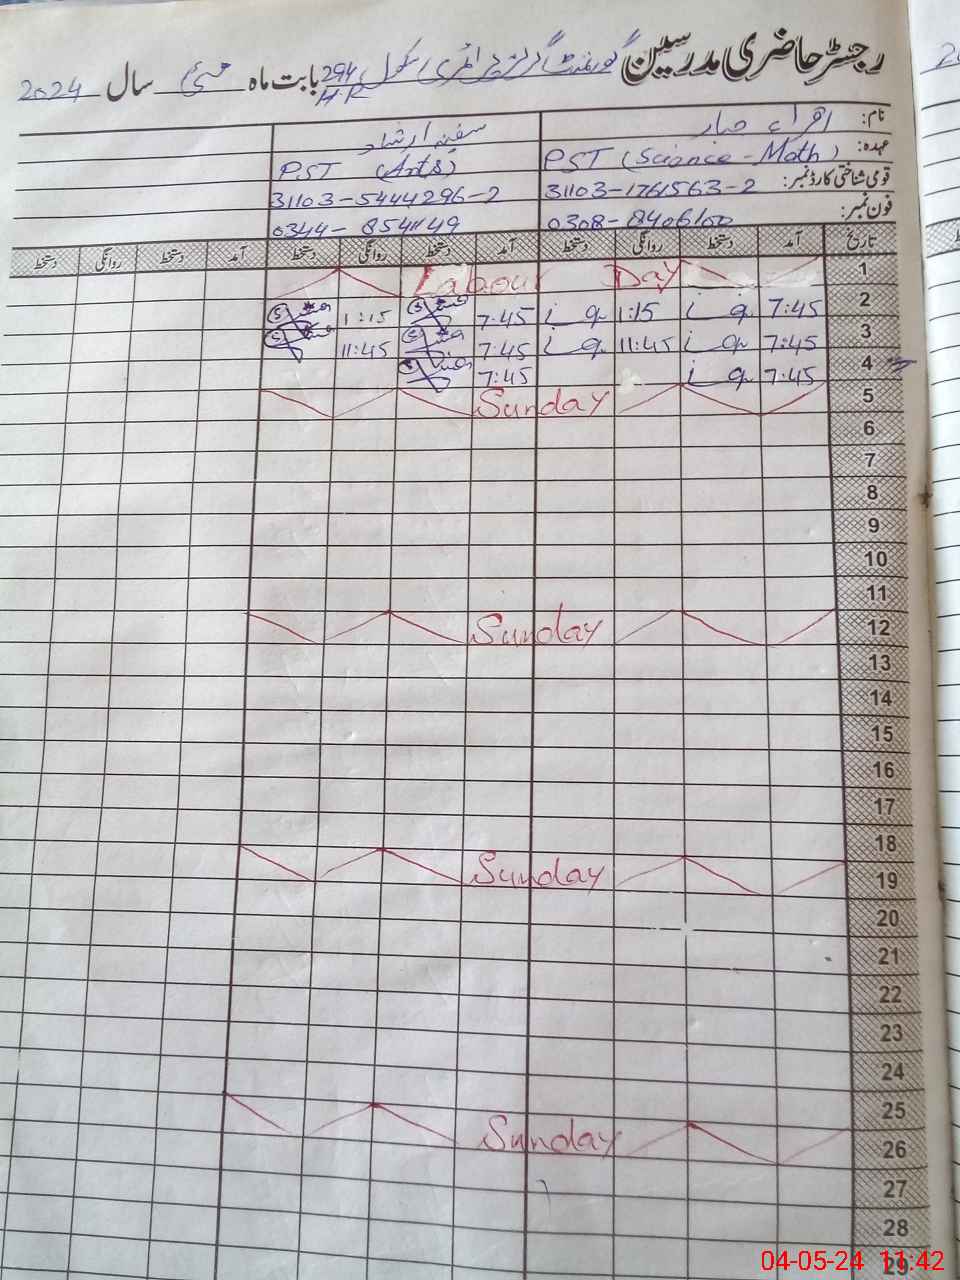 رجسٹر حاضری مدرسین گورنمنٹ گرلز پرائمری سکول 294 بابت ماہ مئی سال 2024
HR
نام: اقراء جبار سفینہ ارشاد
عہدہ: PST (Science-Math) PST (Arts)
قومی شناختی کارڈ نمبر: 31103-1761563-2 31103-5444296-2
فون نمبر: 0308-8406100 0344-8541149
تاریخ آمد دستخط روانگی دستخط آمد دستخط روانگی دستخط آمد دستخط روانگی دستخط
1 Labour Day
2 7:45 iq 1:15 iq 7:45 1:15
3 7:45 iq 11:45 iq 7:45 11:45
4 7:45 iq 7:45
5 Sunday
6
7
8
9
10
11
12 Sunday
13
14
15
16
17
18
19 Sunday
20
21
22
23
24
25
26 Sunday
27
28
29
04-05-24 11:42